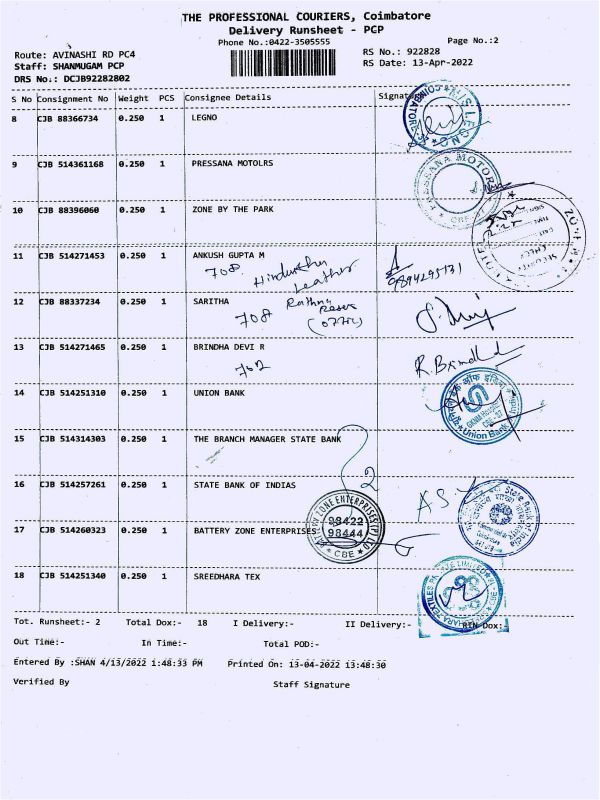 THE PROFESSIONAL COURIERS, Coimbatore
Delivery Runsheet - PCP
Phone No.:0422-3505555
Page No.:2
Route: AVINASHI RD PC4
RS No.: 922828
Staff: SHANMUGAM PCP
RS Date: 13-Apr-2022
DRS No.: DCJB92282802
S No Consignment No Weight PCS Consignee Details Signature
8 CJB 88366734 0.250 1 LEGNO
9 CJB 514361168 0.250 1 PRESSANA MOTOLRS
10 CJB 88396060 0.250 1 ZONE BY THE PARK
11 CJB 514271453 0.250 1 ANKUSH GUPTA M
708. Hindusthan Leather
9894295131
12 CJB 88337234 0.250 1 SARITHA
708
13 CJB 514271465 0.250 1 BRINDHA DEVI R
702
R. Brindha
14 CJB 514251310 0.250 1 UNION BANK
Union Bank
15 CJB 514314303 0.250 1 THE BRANCH MANAGER STATE BANK
2
16 CJB 514257261 0.250 1 STATE BANK OF INDIAS
State Bank of India
17 CJB 514260323 0.250 1 BATTERY ZONE ENTERPRISES
98422
98444
CBE
18 CJB 514251340 0.250 1 SREEDHARA TEX
Tot. Runsheet:- 2 Total Dox:- 18 I Delivery:- II Delivery:- RTN Dox:-
Out Time:- In Time:- Total POD:-
Entered By :SHAN 4/13/2022 1:48:33 PM Printed On: 13-04-2022 13:48:30
Verified By Staff Signature